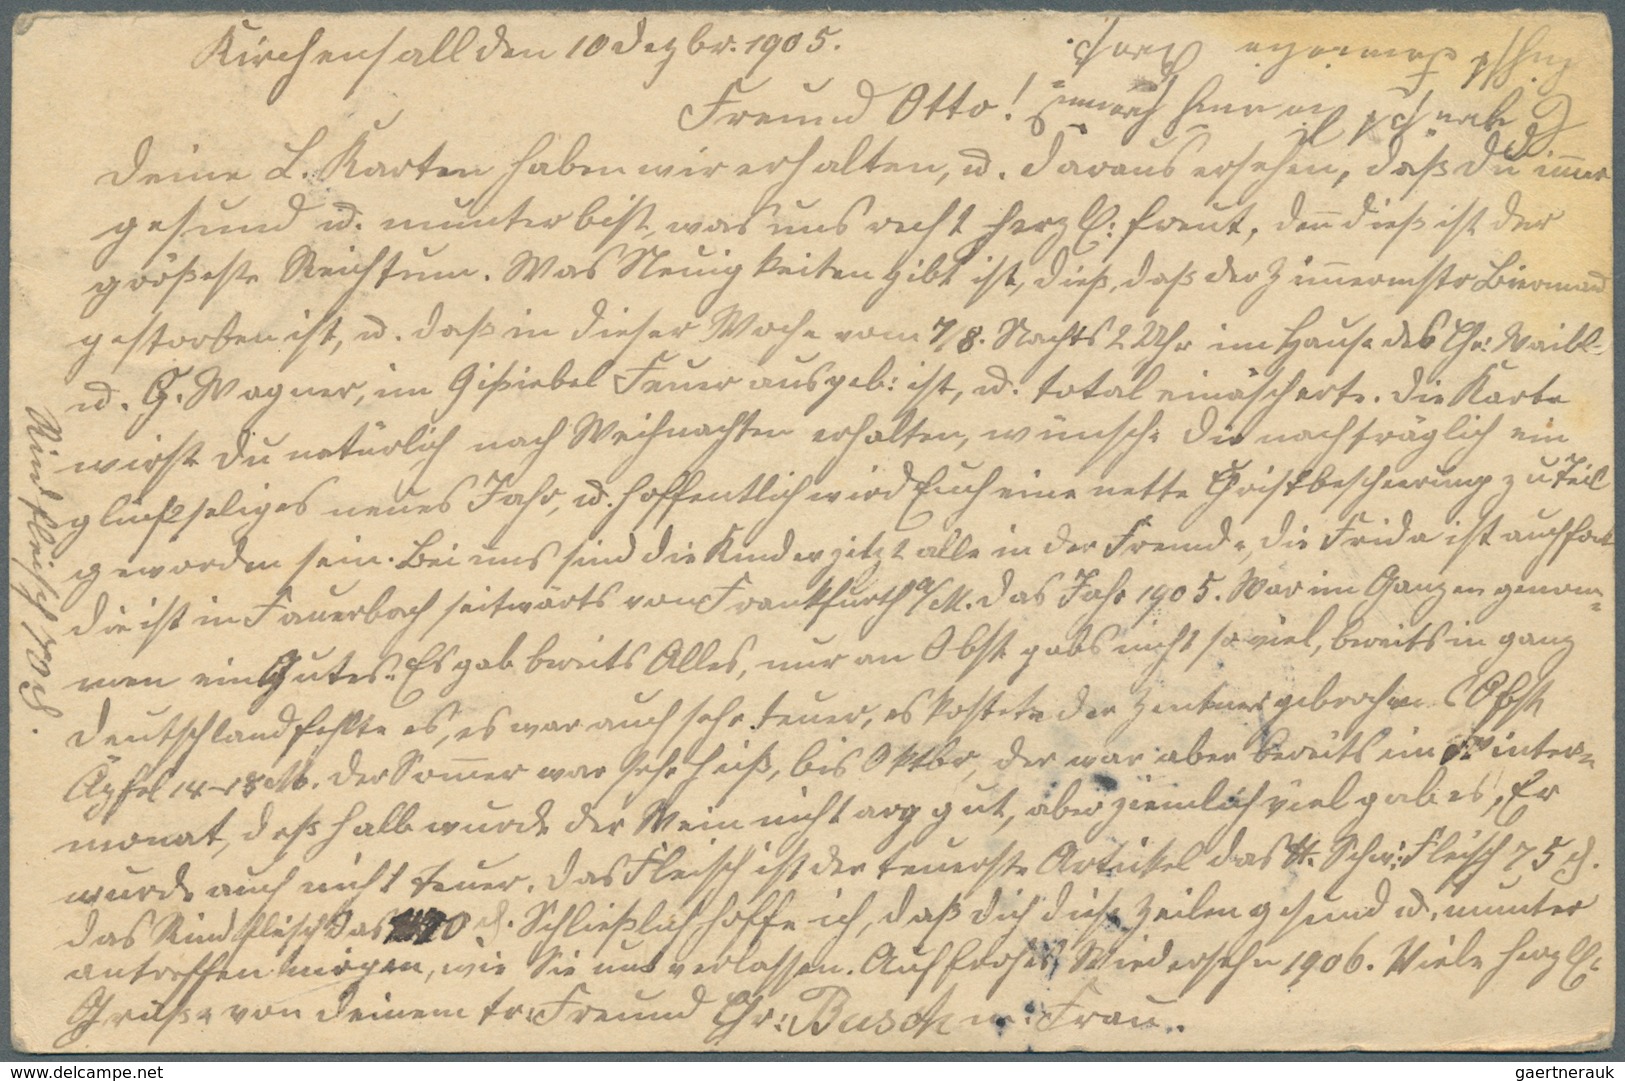 Kirchensall den 10 Dezbr. 1905.
Freund Otto!
Deine L. Karten haben wir erhalten, u. daraus ersehen, daß Du im̄er
gesund u. munter bist, was uns recht herzl: freut, den̄ dieß ist der
größeste Reichtum. Was Neuigkeiten gibt ist, dieß, daß der Zim̄ermstr Biermand
gestorben ist, u. daß in dieser Woche vom 7/8. Nachts 2 Uhr im Hause des Chr: Waibl-
u. G. Wagner, im Feuer ausgeb: ist, u. total einäscherte. Die Karte
wirst Du natürlich nach Weihnachten erhalten, wünsche Dir nachträglich ein
glückseliges neues Jahr, u. hoffentlich wird Euch eine nette Christbescheerung zu Teil
geworden sein. Bei uns sind die Kinder jetzt alle in der Fremde, die Frida ist auch fort
die ist in Fauerbach seitwärts von Frankfurth a/M. Das Jahr 1905. War im Ganzen genom-
men ein Gutes. Es gab bereits Alles, nur an Obst gabs nicht so viel, bereits in ganz
Deutschland fehlte es, es war auch sehr teuer, es kostete der Zentner gebrochenes Obst,
Äpfel 14-18 M. Der Som̄er war sehr heiß, bis Oktbr, der war aber bereits ein Winter-
monat, deßhalb wurde der Wein nicht arg gut, aber ziemlich viel gab es, Er
wurde auch nicht teuer. Das Fleisch ist der teuerste Artickel das ℔. Schw: Fleisch 75 ₰.
das Rindfleisch das 70 ₰. Schließlich hoffe ich, daß Dich diese Zeilen gesund u. munter
antreffen mögen, wie Sie uns verlassen. Auf frohes Wiedersehn 1906. Viele herzl:
Grüße von Deinem tr: Freund Chr: Busch u: Frau..
Rindfleisch 70 ₰.
www.stampcircuit.com
gaertnerauk